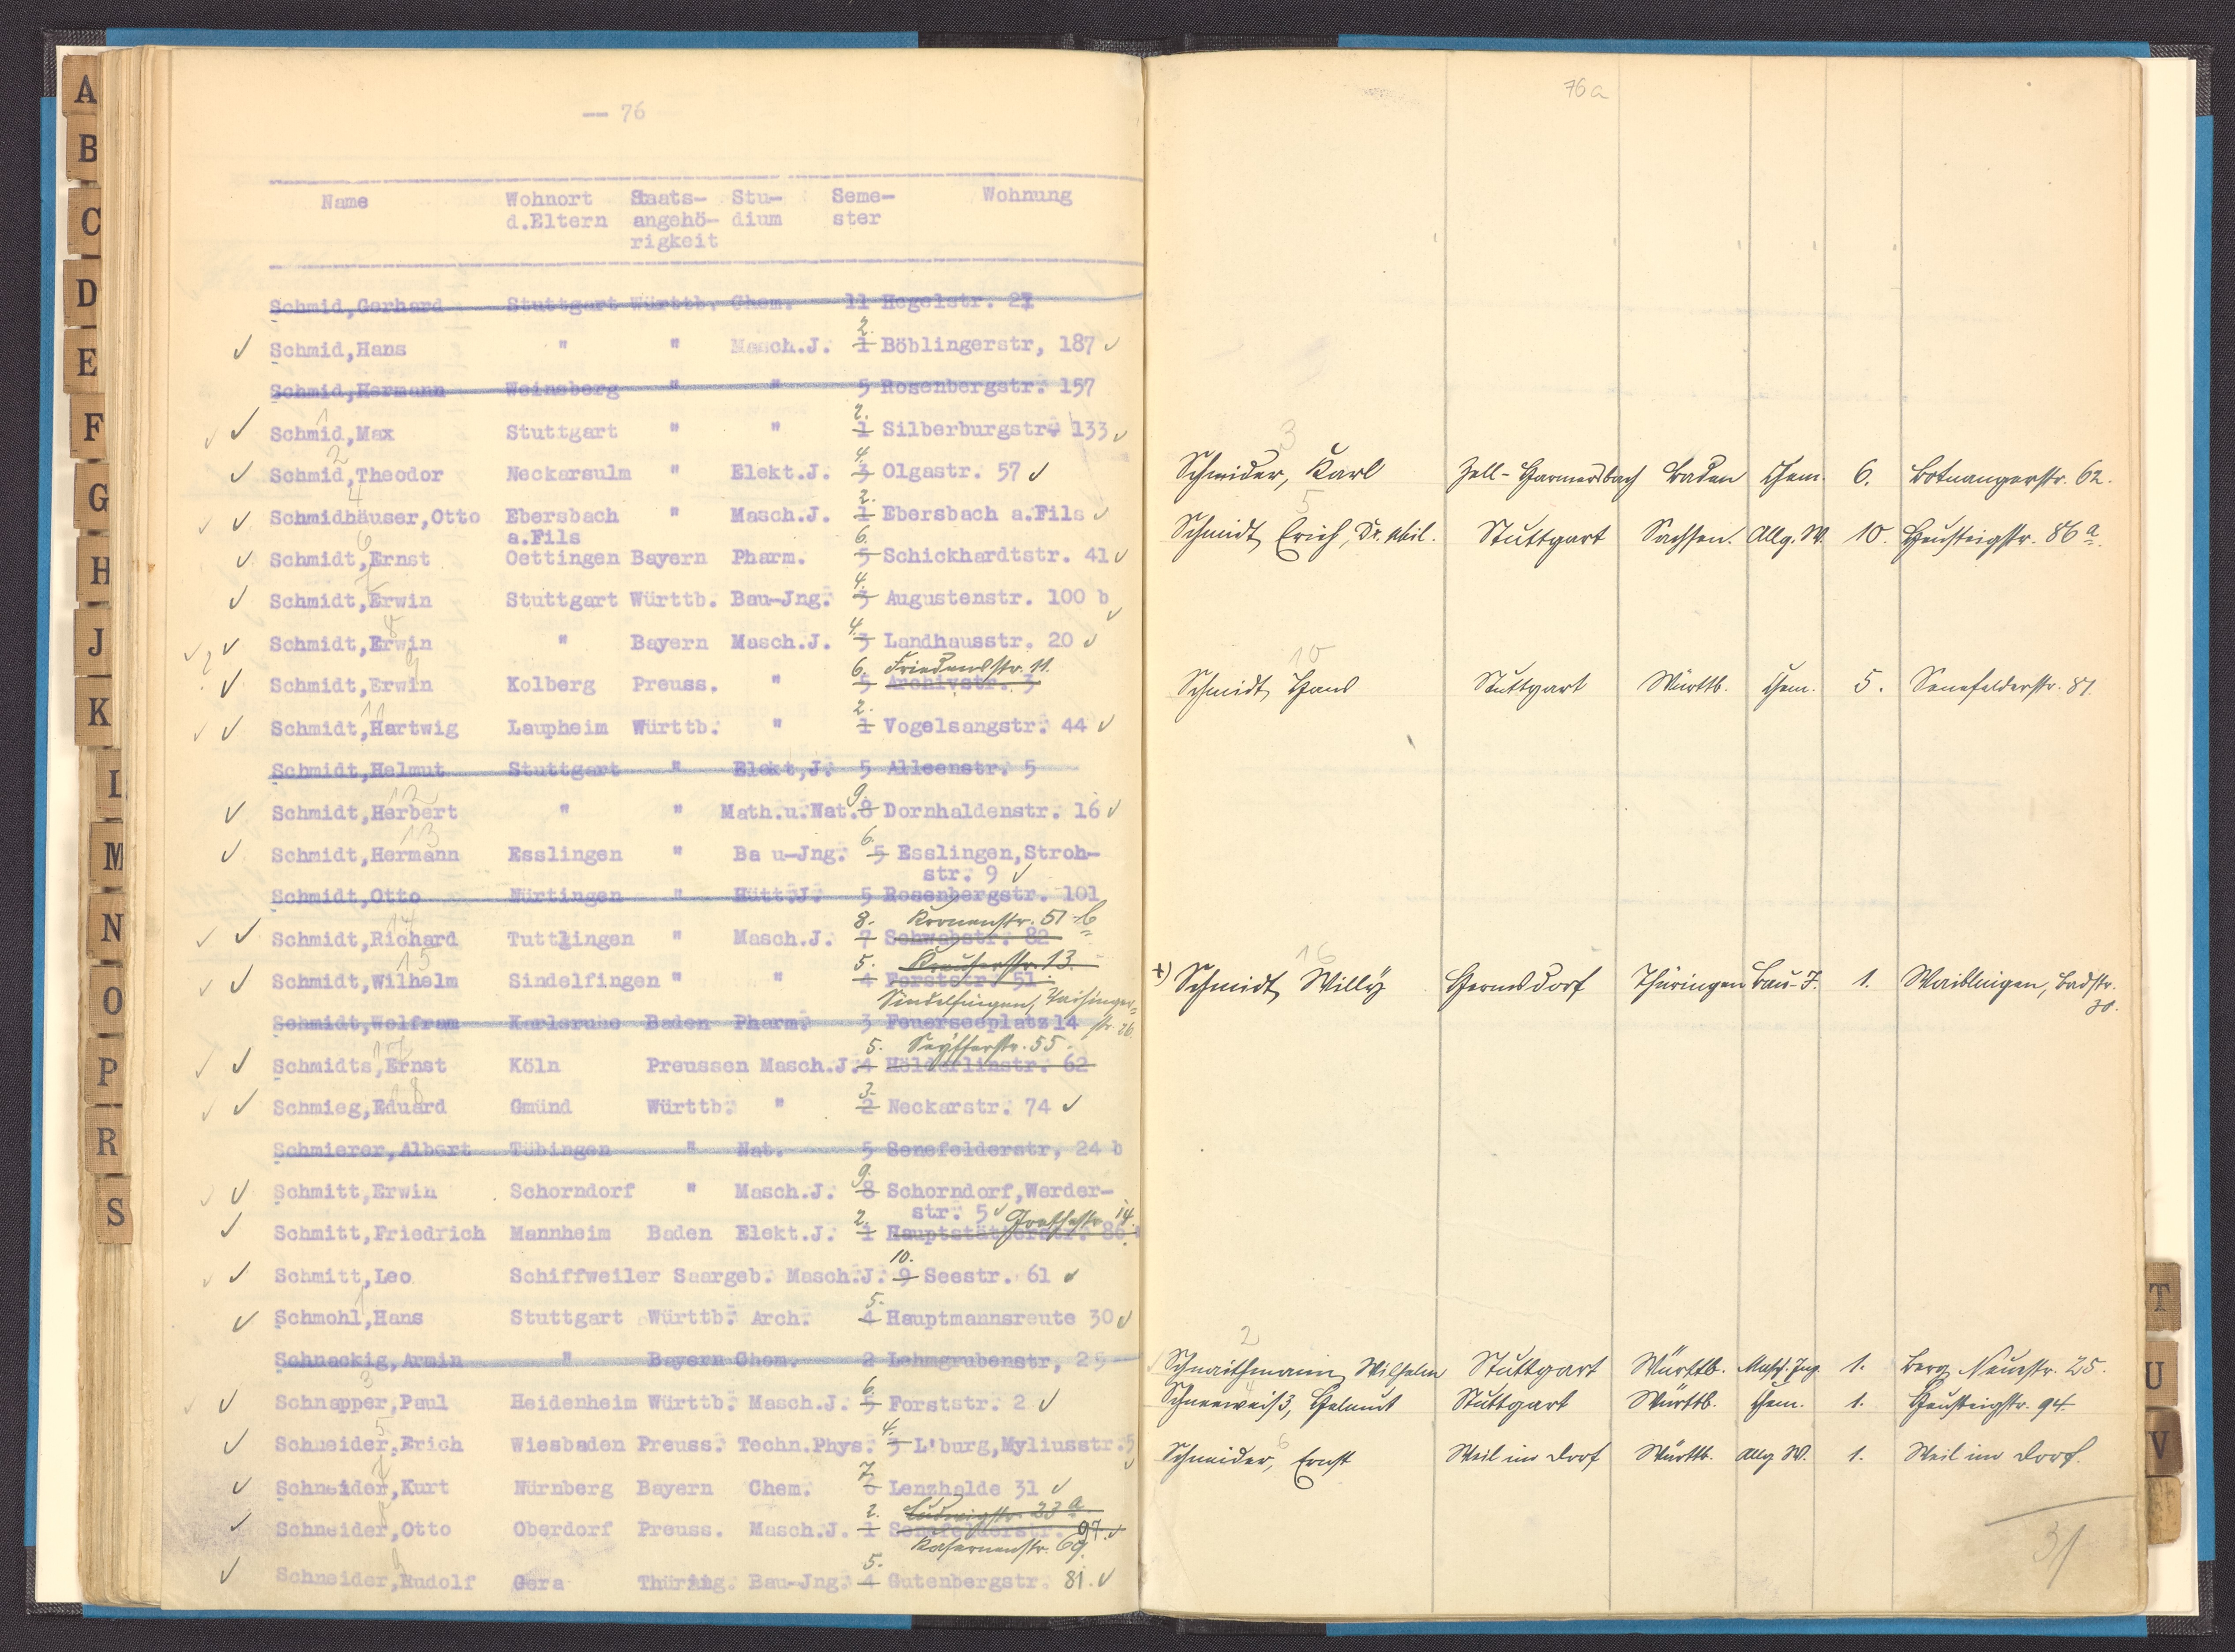 A
B
C
D
E
F
G
H
J
K
L
M
N
O
P
R
S
— 76
Name Wohnort Staats- Stu- Seme- Wohnung
d.Eltern angehö- dium ster
rigkeit
Schmid,Gerhard Stuttgart Württb. Chem. 11 Hegelstr. 21
2.
Schmid,Hans " " Masch.J. 1 Böblingerstr, 187
Schmid,Hermann Weinsberg " " 5 Rosenbergstr. 157
1 2.
Schmid,Max Stuttgart " " 1 Silberburgstr. 133
2 4.
Schmid,Theodor Neckarsulm " Elekt.J. 3 Olgastr. 57
4 2.
Schmidhäuser,Otto Ebersbach " Masch.J. 1 Ebersbach a.Fils
a.Fils
6 6.
Schmidt,Ernst Oettingen Bayern Pharm. 5 Schickhardtstr. 41
7 4.
Schmidt,Erwin Stuttgart Württb. Bau-Jng. 3 Augustenstr. 100 b
8 4.
Schmidt,Erwin " Bayern Masch.J. 3 Landhausstr. 20
9 6. Friedenstr. 11.
Schmidt,Erwin Kolberg Preuss. " 5 Archivstr. 3
11 2.
Schmidt,Hartwig Laupheim Württb. " 1 Vogelsangstr. 44
Schmidt,Helmut Stuttgart " Elekt,J. 5 Alleenstr. 5
12 9.
Schmidt,Herbert " " Math.u.Nat.8 Dornhaldenstr. 16
13 6.
Schmidt,Hermann Esslingen " Ba u-Jng. 5 Esslingen,Stroh-
str. 9
Schmidt,Otto Nürtingen " Hütt.J. 5 Rosenbergstr. 101
14 8. Kronenstr. 51 b
Schmidt,Richard Tuttlingen " Masch.J. 7 Schwabstr. 82
15 5. 13.
Schmidt,Wilhelm Sindelfingen " " 4 Forststr. 51
Sindelfingen,
Schmidt,Wolfram Karlsruhe Baden Pharm. 3 Feuerseeplatz14 str. 26.
17 5. Seyfferstr. 55.
Schmidts,Ernst Köln Preussen Masch.J.4 Hölderlinstr. 62
18 3.
Schmieg,Eduard Gmünd Württb. " 2 Neckarstr. 74
Schmierer,Albert Tübingen " Nat. 5 Senefelderstr, 24 b
9.
Schmitt,Erwin Schorndorf " Masch.J. 8 Schorndorf,Werder-
str. 5
2. Goethestr. 14.
Schmitt,Friedrich Mannheim Baden Elekt.J. 1 Hauptstätterstr. 86
10.
Schmitt,Leo Schiffweiler Saargeb. Masch.J. 9 Seestr. 61
1 5.
Schmohl,Hans Stuttgart Württb. Arch. 4 Hauptmannsreute 30
Schnackig,Armin " Bayern Chem. 2 Lehmgrubenstr, 25
3 6.
Schnapper,Paul Heidenheim Württb. Masch.J. 5 Forststr. 2
5 4.
Schneider,Erich Wiesbaden Preuss. Techn.Phys. 3 L'burg,Myliusstr.5
7 7.
Schneider,Kurt Nürnberg Bayern Chem. 6 Lenzhalde 31
8 2. Ludwigstr. 23 a
Schneider,Otto Oberdorf Preuss. Masch.J. 1 Senefelderstr. 97.
Kasernenstr. 69.
9 5.
Schneider,Rudolf Gera Thüring. Bau-Jng. 4 Gutenbergstr. 81.
76a
3
Schmider, Karl Zell-Harmersbach Baden Chem. 6. Botnangerstr. 62.
5
Schmidt, Erich, Dr. phil. Stuttgart Sachsen. Allg. W. 10. Heusteigstr. 86 a.
10
Schmidt, Hans Stuttgart Württb. Chem. 5. Senefelderstr. 81.
16
+) Schmidt, Willy Hermsdorf Thüringen Bau-J. 1. Waiblingen, Badstr.
30.
2
Schnaithmann, Wilhelm Stuttgart Württb. Masch. Ing. 1. Berg, Neuestr. 25.
4
Schneeweiß, Helmut Stuttgart Württb. Chem. 1. Heusteigstr. 94.
6
Schneider, Ernst Weil im Dorf Württb. Allg. W. 1. Weil im Dorf.
31
T
U
V